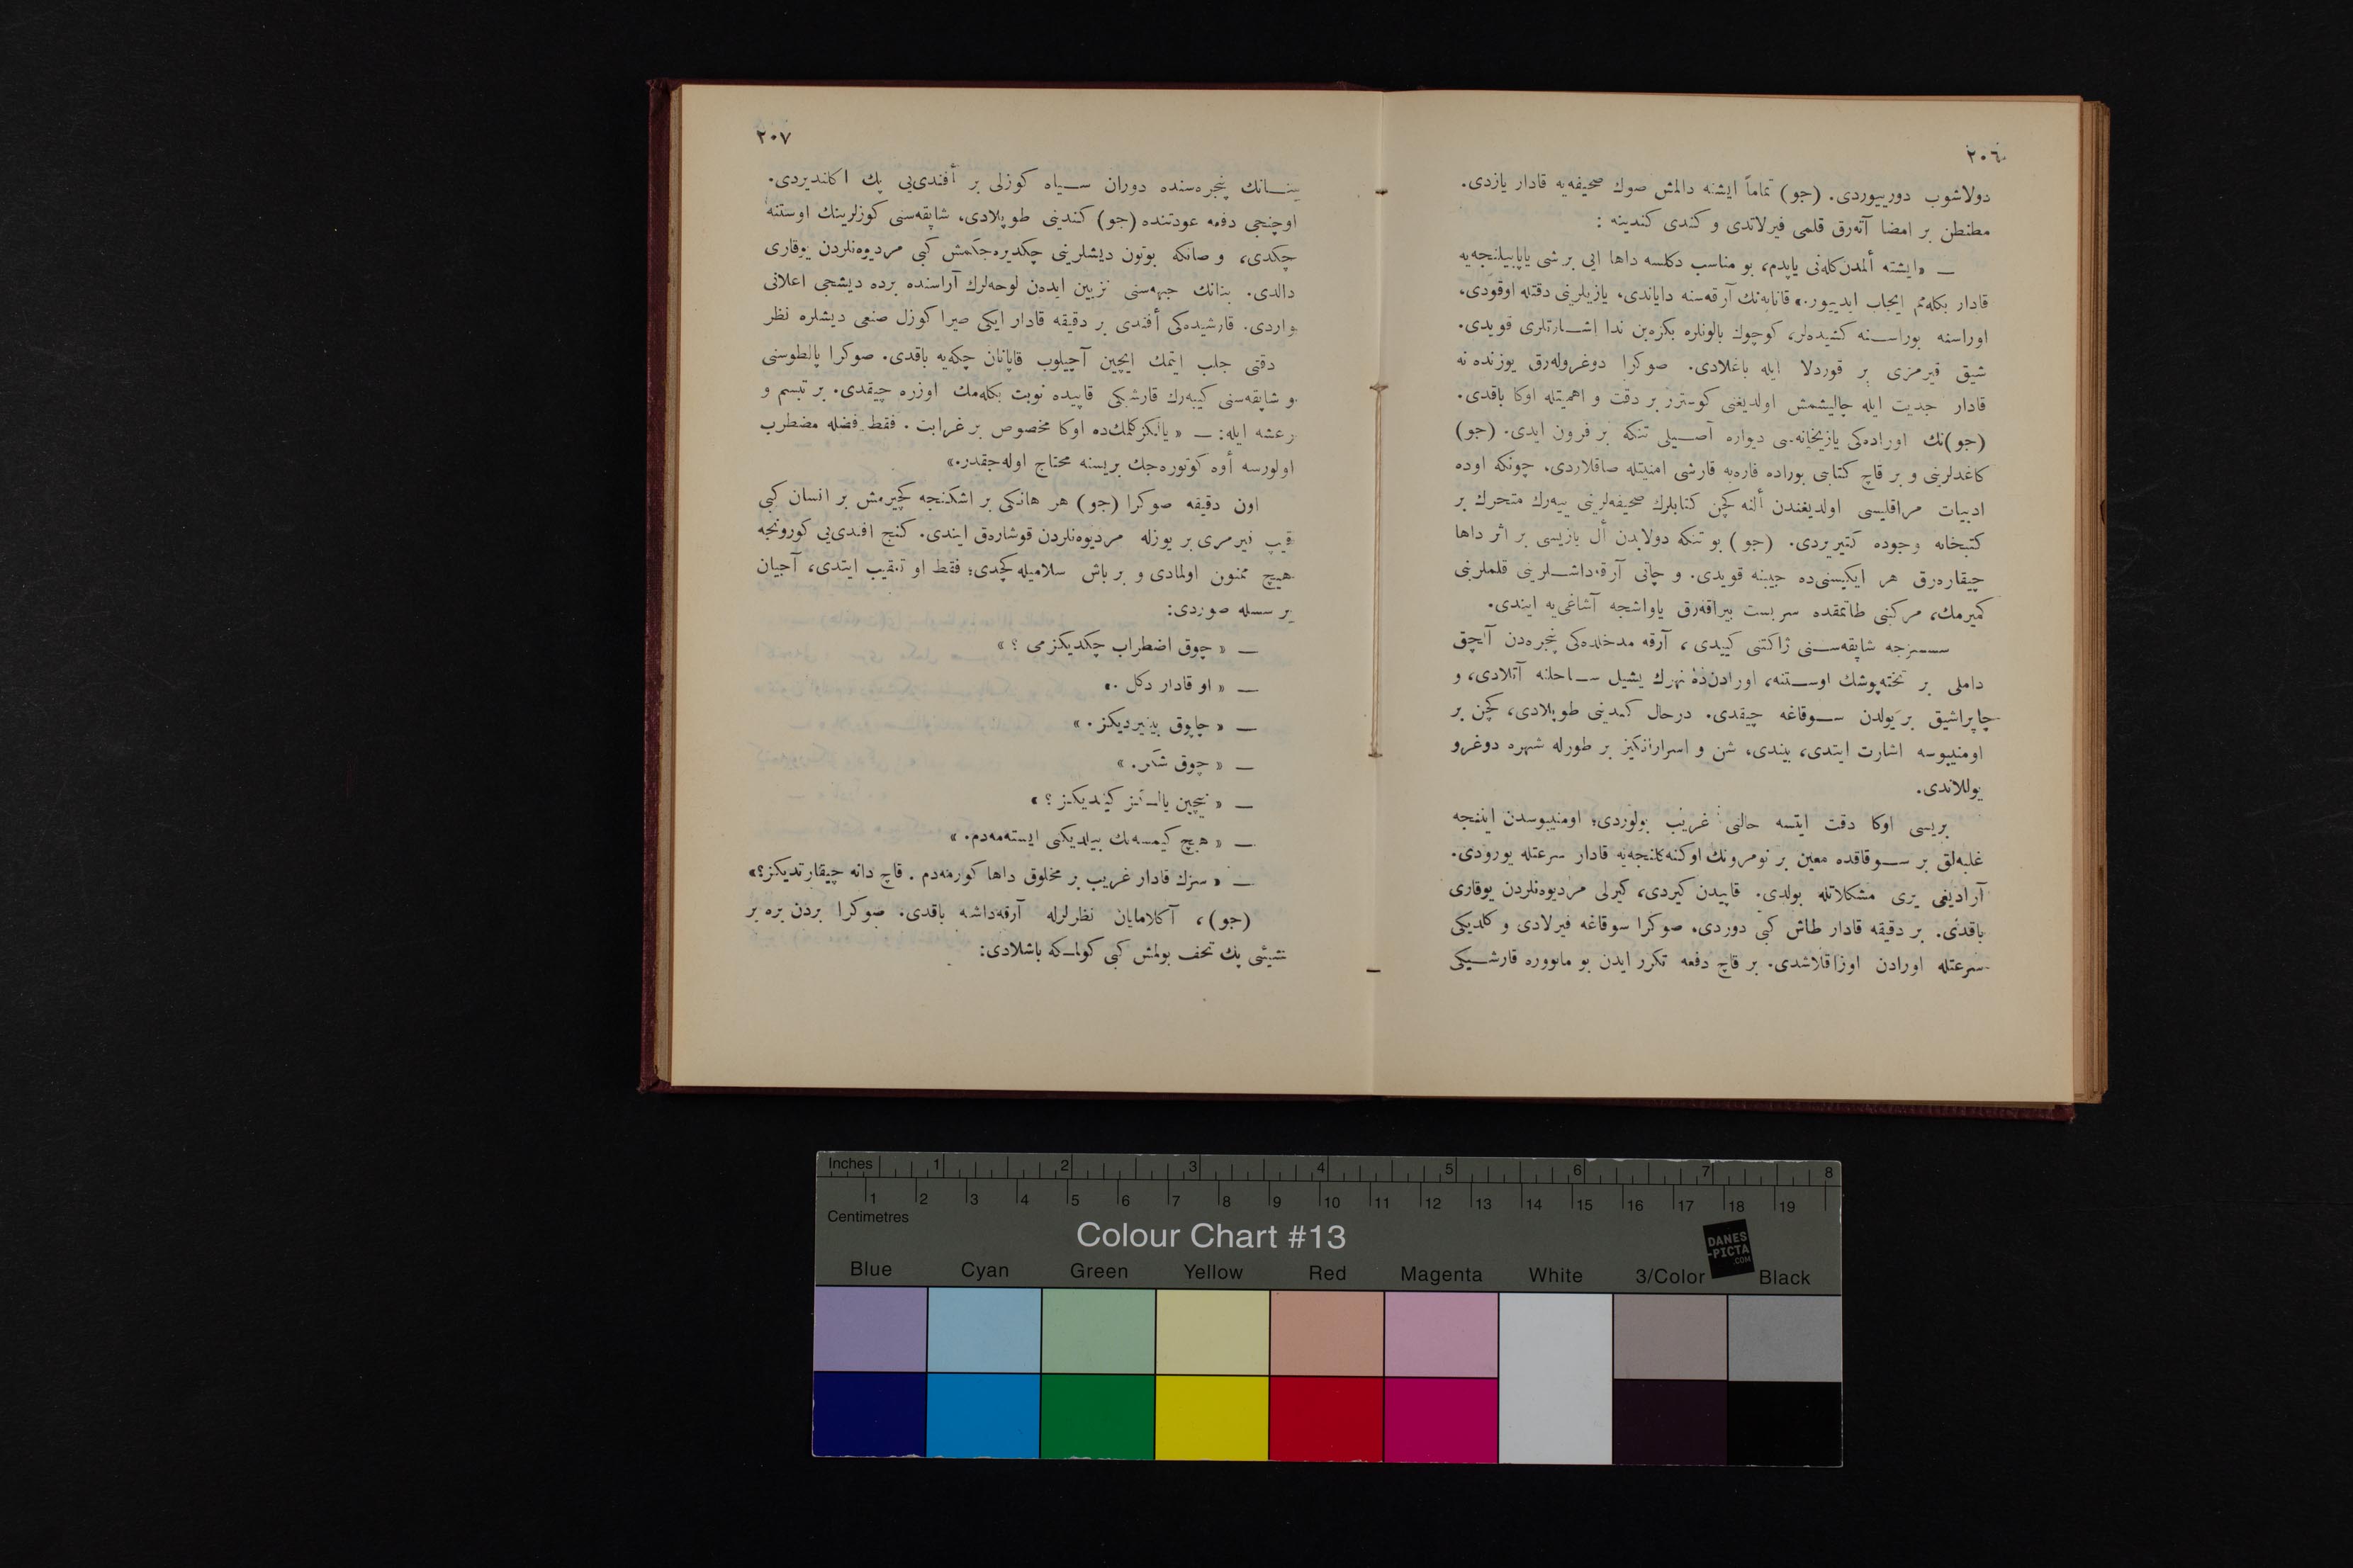 ٢٠٦
دولاشوب دورییوردی. (جو) تماماً ایشنه دالمش صوك صحیفه‌یه قادار یازدی.
مطنطن بر امضا آته‌رق قلمی فیرلاتدی و كندی كندینه :
— «ایشته ألمدن كله‌نی یاپدم، بو مناسب دكلسه داها ایی بر شی یاپابیلنجه‌یه
قادار بكله‌مم ایجاب ایدییور.» قاناپه‌نك آرقه‌سنه دایاندی، یازیلرینی دقتله اوقودی،
اوراسنه بوراسنه كشیده‌لر، كوچوك بالونلره بكزه‌ین ندا اشارتلری قویدی.
شیق قیرمزی بر قوردلا ایله باغلادی. صوكرا دوغروله‌رق یوزنده نه
قادار جدیت ایله چالیشمش اولدیغنی كوسترر بر دقت و اهمیتله اوكا باقدی.
(جو)نك اوراده‌كی یازیخانه‌سی دیواره آصیلی تنكه بر فرون ایدی. (جو)
كاغدلرینی و بر قاچ كتابی بوراده فاره‌یه قارشی امنیتله صاقلاردی، چونكه اوده
ادبیات مراقلیسی اولدیغندن ألنه كچن كتابلرك صحیفه‌لرینی ییه‌رك متحرك بر
كتبخانه وجوده كتیریردی. (جو) بو تنكه دولابدن أل یازیسی بر اثر داها
چیقاره‌رق هر ایكیسنی‌ده جیبنه قویدی. و چاتی آرقه‌داشلرینی قلملرینی
كمیرمك، مركبنی طاتمقده سربست بیراقه‌رق یاواشجه آشاغی‌یه ایندی.
سسزجه شاپقه‌سنی ژاكتنی كییدی، آرقه مدخلده‌كی پنجره‌دن آلچق
داملی بر تخته‌پوشك اوستنه، اورادن‌ده نهرك یشیل ساحلنه آتلادی، و
چاپراشیق بر یولدن سوقاغه چیقدی. درحال كندینی طوپلادی، كچن بر
اومنیبوسه اشارت ایتدی، بیندی، شن و اسرارانكیز بر طورله شهره دوغرو
یوللاندی.
بریسی اوكا دقت ایتسه حالنی غریب بولوردی؛ اومنیبوسدن اینجه
غلبه‌لق بر سوقاقده معین بر نومرونك اوكنه كلنجه‌یه قادار سرعتله یورودی.
آرادیغی یری مشكلاتله بولدی. قاپیدن كیردی، كیرلی مردیوه‌نلردن یوقاری
باقدی. بر دقیقه قادار طاش كبی دوردی، صوكرا سوقاغه فیرلادی و كلدیكی
سرعتله اورادن اوزاقلاشدی. بر قاچ دفعه تكرر ایدن بو مانووره قارشیكی
٢٠٧
بنانك پنجره‌سنده دوران سیاه كوزلی بر أفندی‌یی پك اكلندیردی.
اوچنجی دفعه عودتنده (جو) كندینی طوپلادی، شاپقه‌سنی كوزلرینك اوستنه
چكدی، و صانكه بوتون دیشلرینی چكدیره‌جكمش كبی مردیوه‌نلردن یوقاری
دالدی. بنانك جبهه‌سنی تزیین ایده‌ن لوحه‌لرك آراسنده برده دیشجی اعلانی
واردی. قارشیده‌كی أفندی بر دقیقه قادار ایكی صیرا كوزل صنعی دیشلره نظر
دقتی جلب ایتمك ایچین آچیلوب قاپانان چكه‌یه باقدی. صوكرا پالطوسنی
و شاپقه‌سنی كییه‌رك قارشیكی قاپیده نوبت بكله‌مك اوزره چیقدی. بر تبسم و
رعشه ایله: — «یالكز كلمك‌ده اوكا مخصوص بر غرابت. فقط فضله مضطرب
اولورسه أوه كوتوره‌جك بریسنه محتاج اوله‌جقدر.»
اون دقیقه صوكرا (جو) هر هانكی بر اشكنجه كچیرمش بر انسان كبی
قیپ قیرمزی بر یوزله مردیوه‌نلردن قوشارق ایندی. كنج افندی‌یی كورونجه
هیچ ممنون اولمادی و بر باش سلامیله كچدی؛ فقط او تعقیب ایتدی، آجیان
بر سسله صوردی:
— «چوق اضطراب چكدیكزمی ؟»
— «او قادار دكل.»
— «چاپوق بیتیردیكز.»
— «چوق شكر.»
— «نیچین یالكز كیتدیكز؟»
— «هیچ كیمسه‌نك بیلدیكنی ایسته‌مه‌دم.»
— «سزك قادار غریب بر مخلوق داها كورمه‌دم. قاچ دانه چیقارتدیكز؟»
(جو)، آكلامایان نظرلرله آرقه‌داشنه باقدی. صوكرا بردن بره بر
شیئی پك تحف بولمش كبی كولمكه باشلادی:
Inches 1 2 3 4 5 6 7 8
1 2 3 4 5 6 7 8 9 10 11 12 13 14 15 16 17 18 19
Centimetres
Colour Chart #13
DANES
-PICTA
.COM
Blue Cyan Green Yellow Red Magenta White 3/Color Black